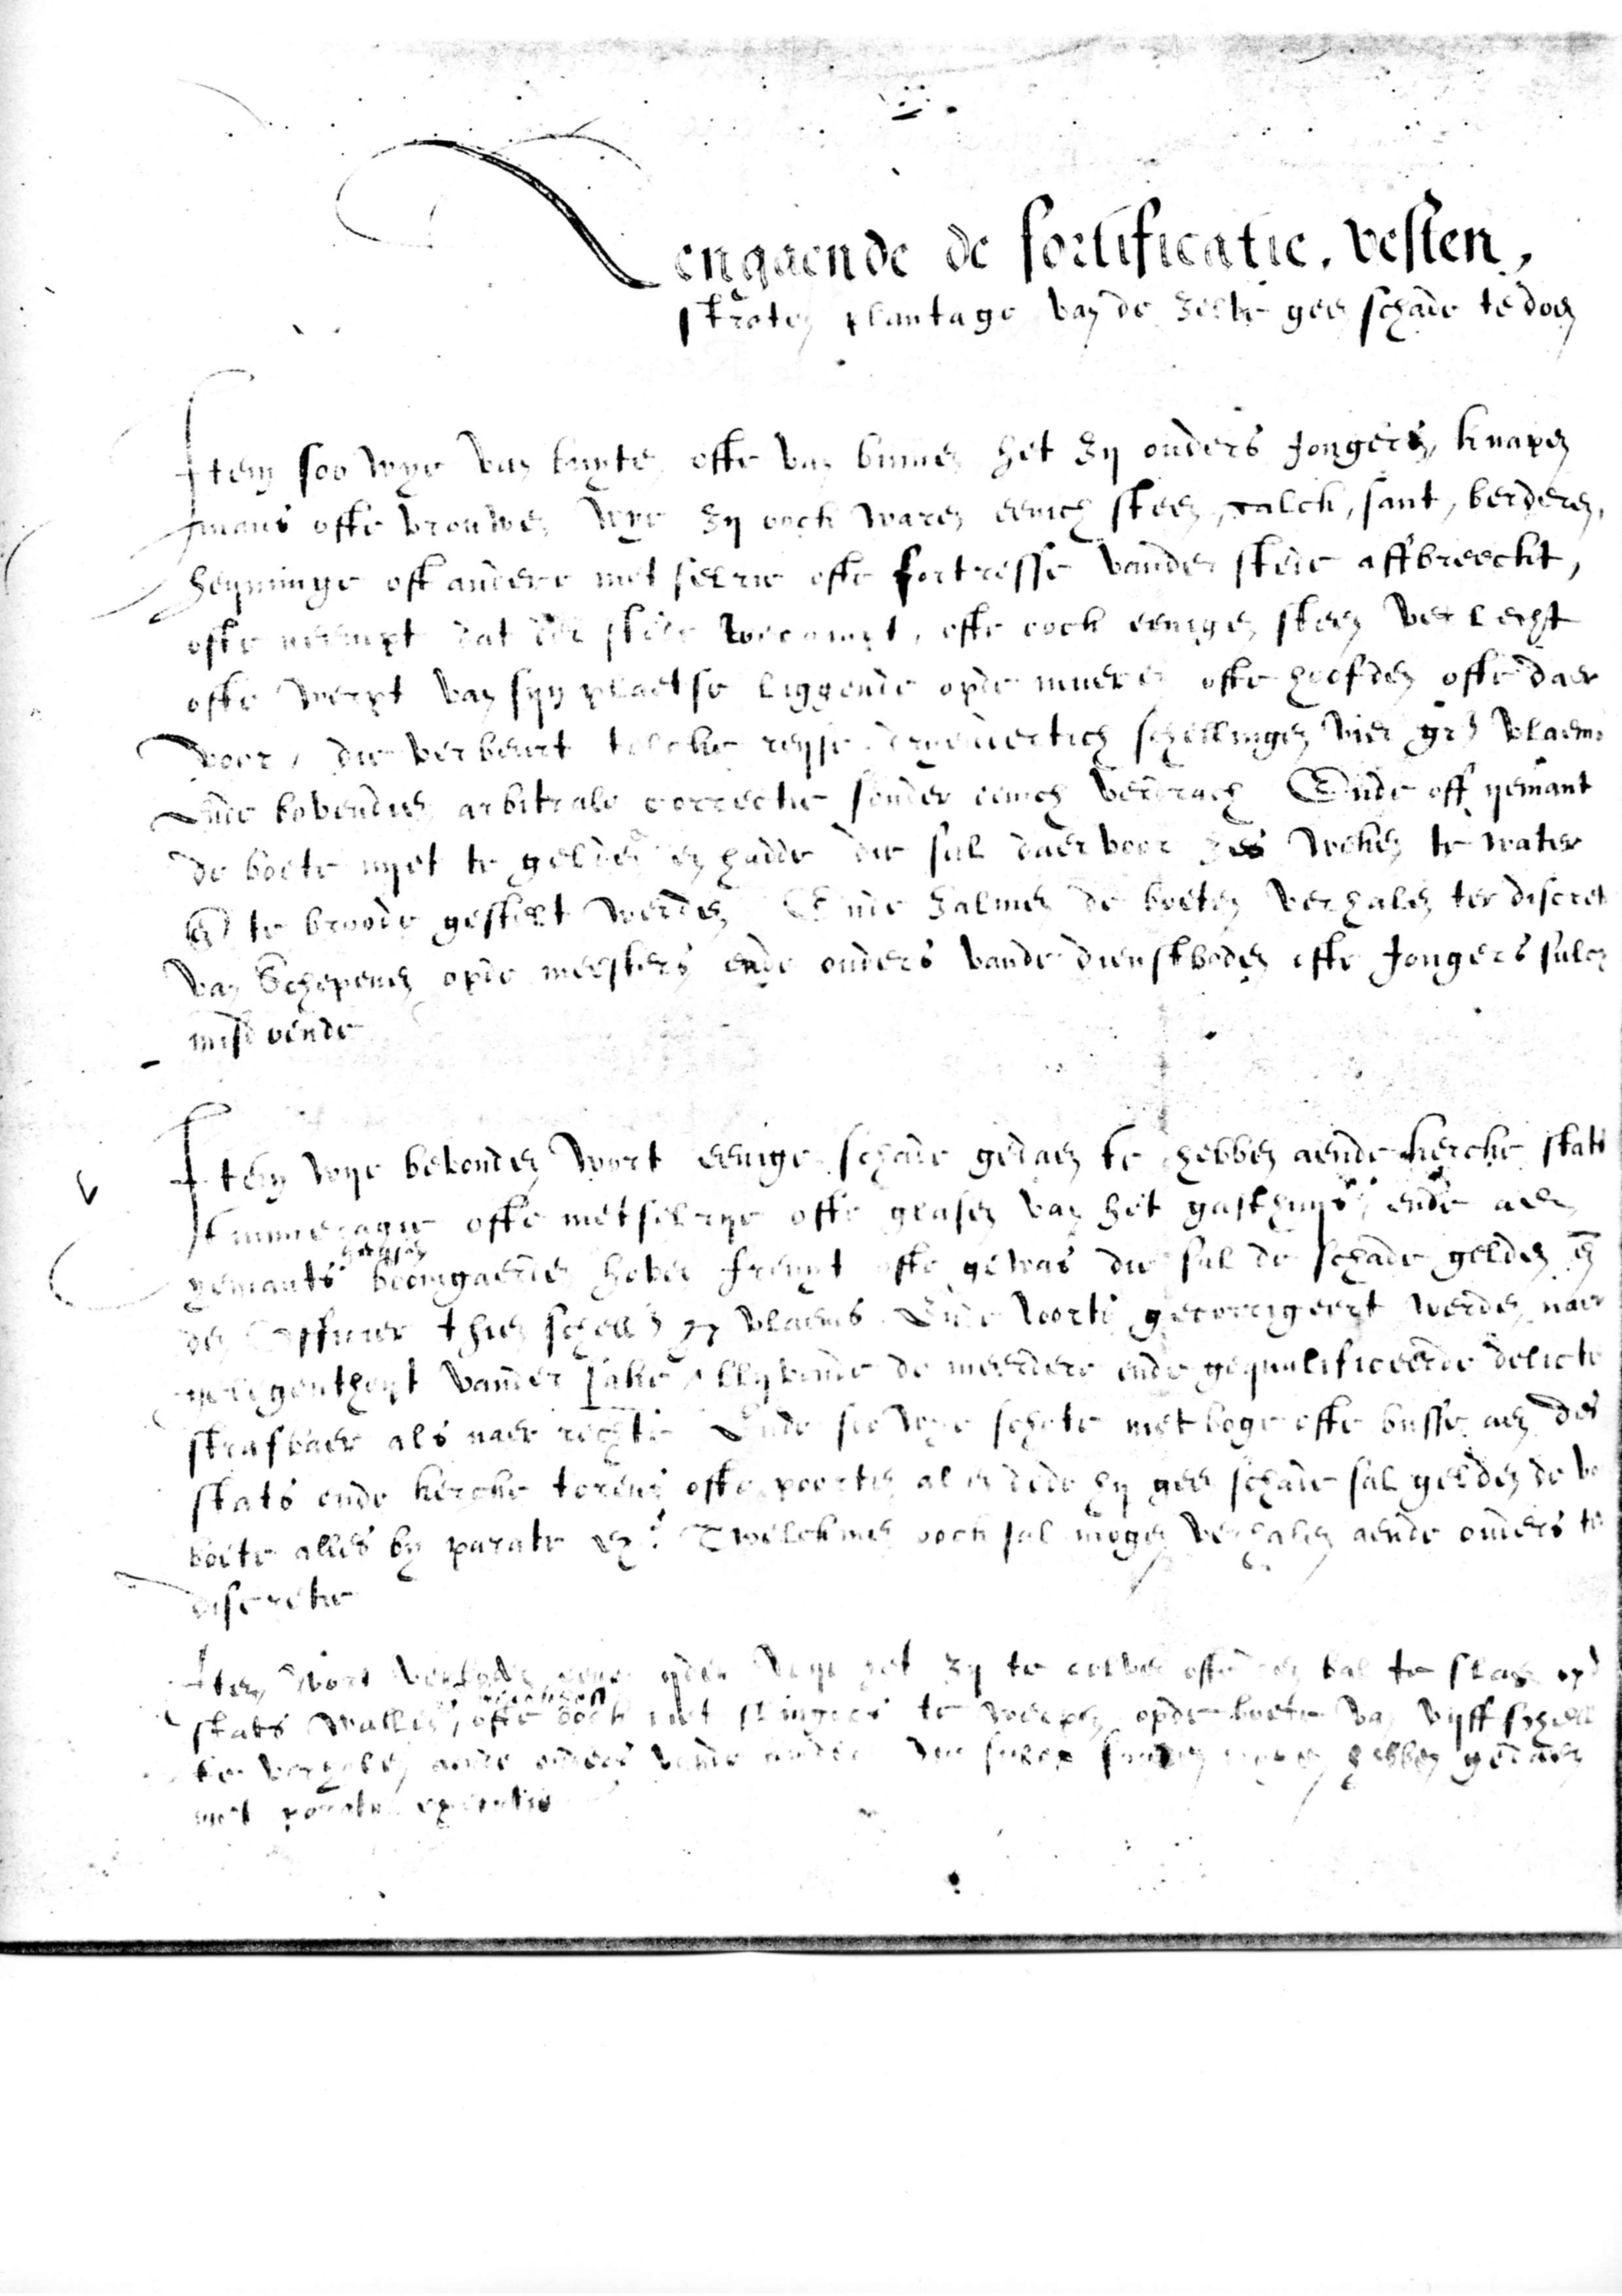 Aengaende de fortificatie, vesten,
straten plantage van de zelve geen schade te doen
Item soo wye van buyten offe van binnen het zy ouders Jongers, knapen
mans offe vrouwen wye zy oock waren eenich steen, calck, sant, berderen,
heyninge off andere metselrie offe fortresse vander stede affbreeckt,
offe neempt dat der stede toecompt, offe oock eenigen steen verlecht
offe werpt van syn plaetse liggende opde mueren offe hoofden offe daer
voor, die verbeurt telcke reyse dryendertich schellingen vier gr. vlaems
Ende bovendien arbitrale correctie sonder eenich verdrach Ende off yemant
de boete nyet te gelden en hadde die sal daervoor zes weken te water
en te broode gestelt werden Ende salmen de boeten verhalen ter discret
van Schepenen opde meesters ende ouders vande dienstboden offe Jongers sulcx
misdoende
Item wye bevonden wort eenige schade gedaen te hebben aende kercke stats
timmeragie offe metselrye offe glasen van het gasthuys, ende aen
yemants boomgaerden hoven fruyt offe gewas die sal de schade gelden en
den Officier thien schell. vlaems Ende voorts gecorrigeert werden naer
gelegentheyt vander sake, blyvende de meerdere ende gequalificeerde delicte
strafbaer als naer rechte Ende soo wye schote met boge offe busse aen des
stats ende kercke torens offe poorten al en dede hy geen schade sal gelden de
boete alles by parate ex. Twelckmen oock sal mogen verhalen aende ouders te
discretie
Item wort verboden eenen yder wye het zy te colven offe den bal te slaen opd
stats wallen, offe oock met slingers te werpen opde boete van vyff schell
te verhalen aende ouders vande die sulcx hebben gedaen
met parate executie